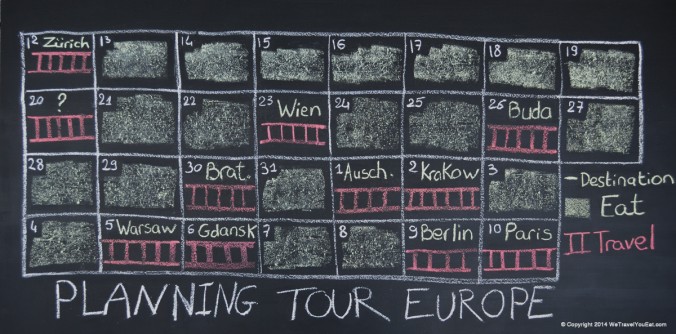 12 Zürich 13 14 15 16 17 18 19
20 ? 21 22 23 Wien 24 25 26 Buda 27
28 29 30 Brat. 31 1 Ausch. 2 Krakow 3
– Destination
Eat
4 5 Warsaw 6 Gdansk 7 8 9 Berlin 10 Paris
Travel
PLANNING TOUR EUROPE
© Copyright 2014 WeTravelYouEat.com